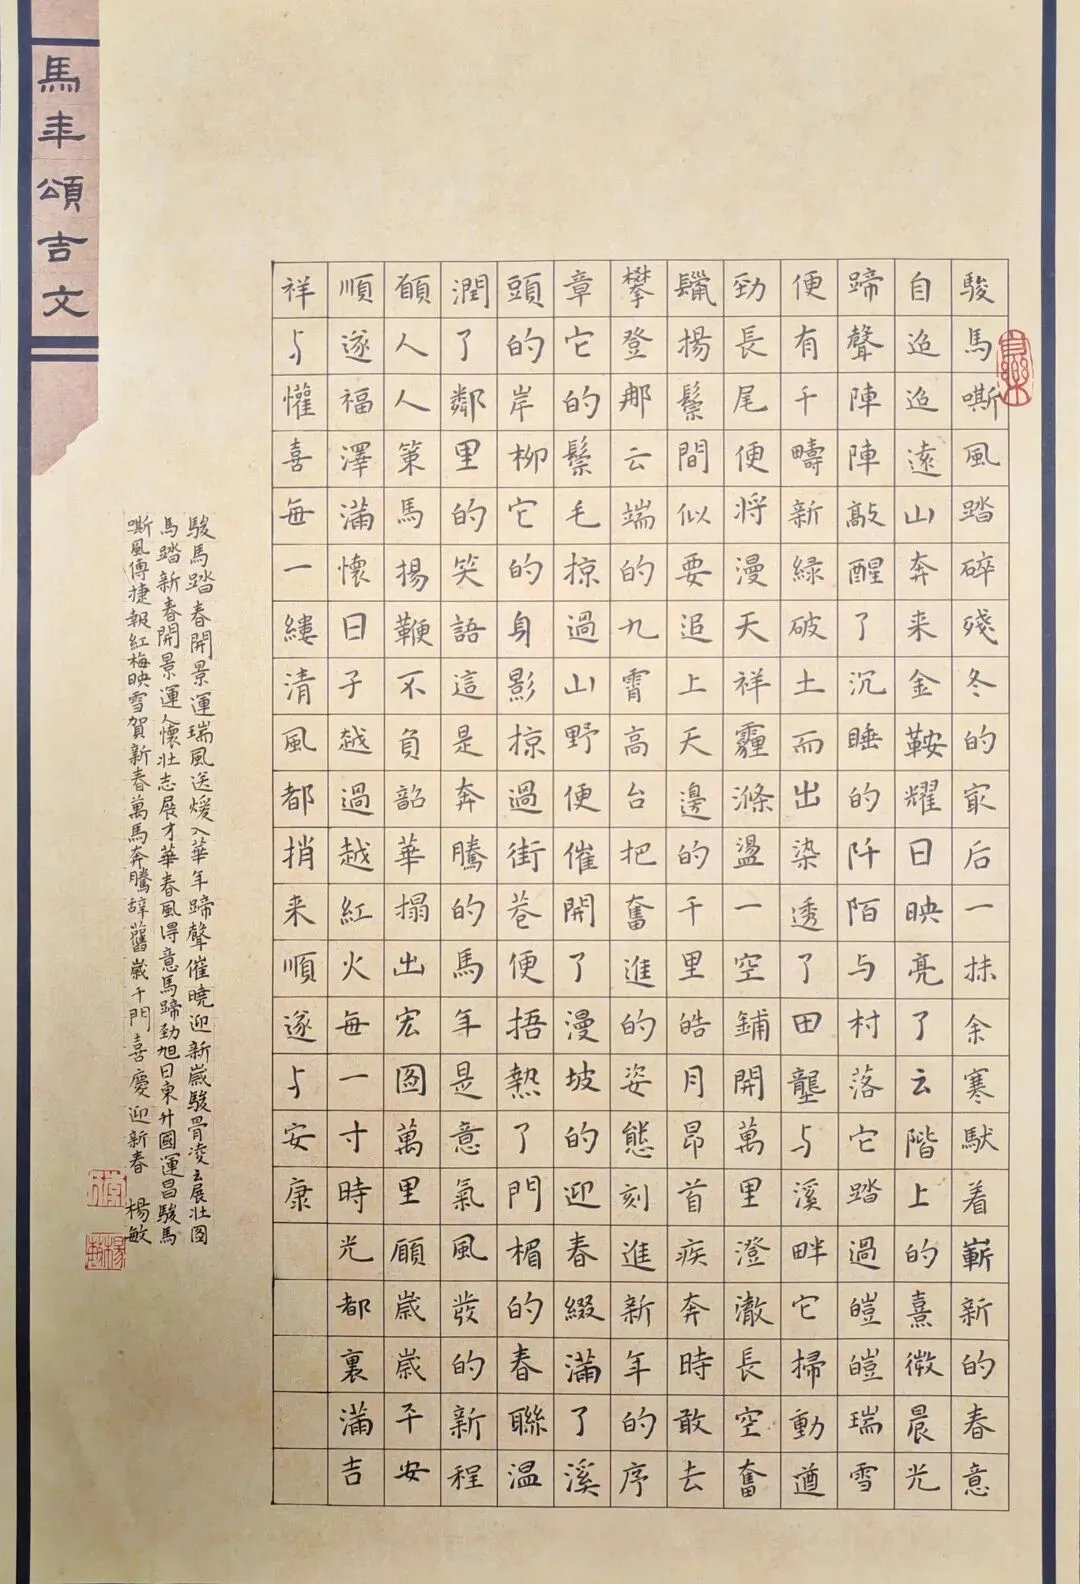 馬年頌吉文
駿馬嘶風踏碎殘冬的寂后一抹余寒馱着嶄新的春意
自迢迢遠山奔来金鞍耀日映亮了云階上的熹微晨光
蹄聲陣陣敲醒了沉睡的阡陌与村落它踏過皚皚瑞雪
便有千疇新緑破土而出染透了田壟与溪畔它掃動遒
勁長尾便将漫天祥霾滌盪一空鋪開萬里澄澈長空奮
鬣揚鬃間似要追上天邊的千里皓月昂首疾奔時敢去
攀登那云端的九霄高台把奮進的姿態刻進新年的序
章它的鬃毛掠過山野便催開了漫坡的迎春綴滿了溪
頭的岸柳它的身影掠過街巷便捂熱了門楣的春聯温
潤了鄰里的笑語這是奔騰的馬年是意氣風發的新程
願人人策馬揚鞭不負韶華搨出宏图萬里願歲歲平安
順遂福澤滿懷日子越過越紅火每一寸時光都裏滿吉
祥与懽喜每一縷清風都捎来順遂与安康
駿馬踏春開景運瑞風送煖入華年蹄聲催曉迎新歲駿骨凌云展壯图
馬踏新春開景運人懷壯志展才華春風得意馬蹄勁旭日東升國運昌駿馬
嘶風傳捷報紅梅映雪賀新春萬馬奔騰辞舊歲千門喜慶迎新春 楊敏